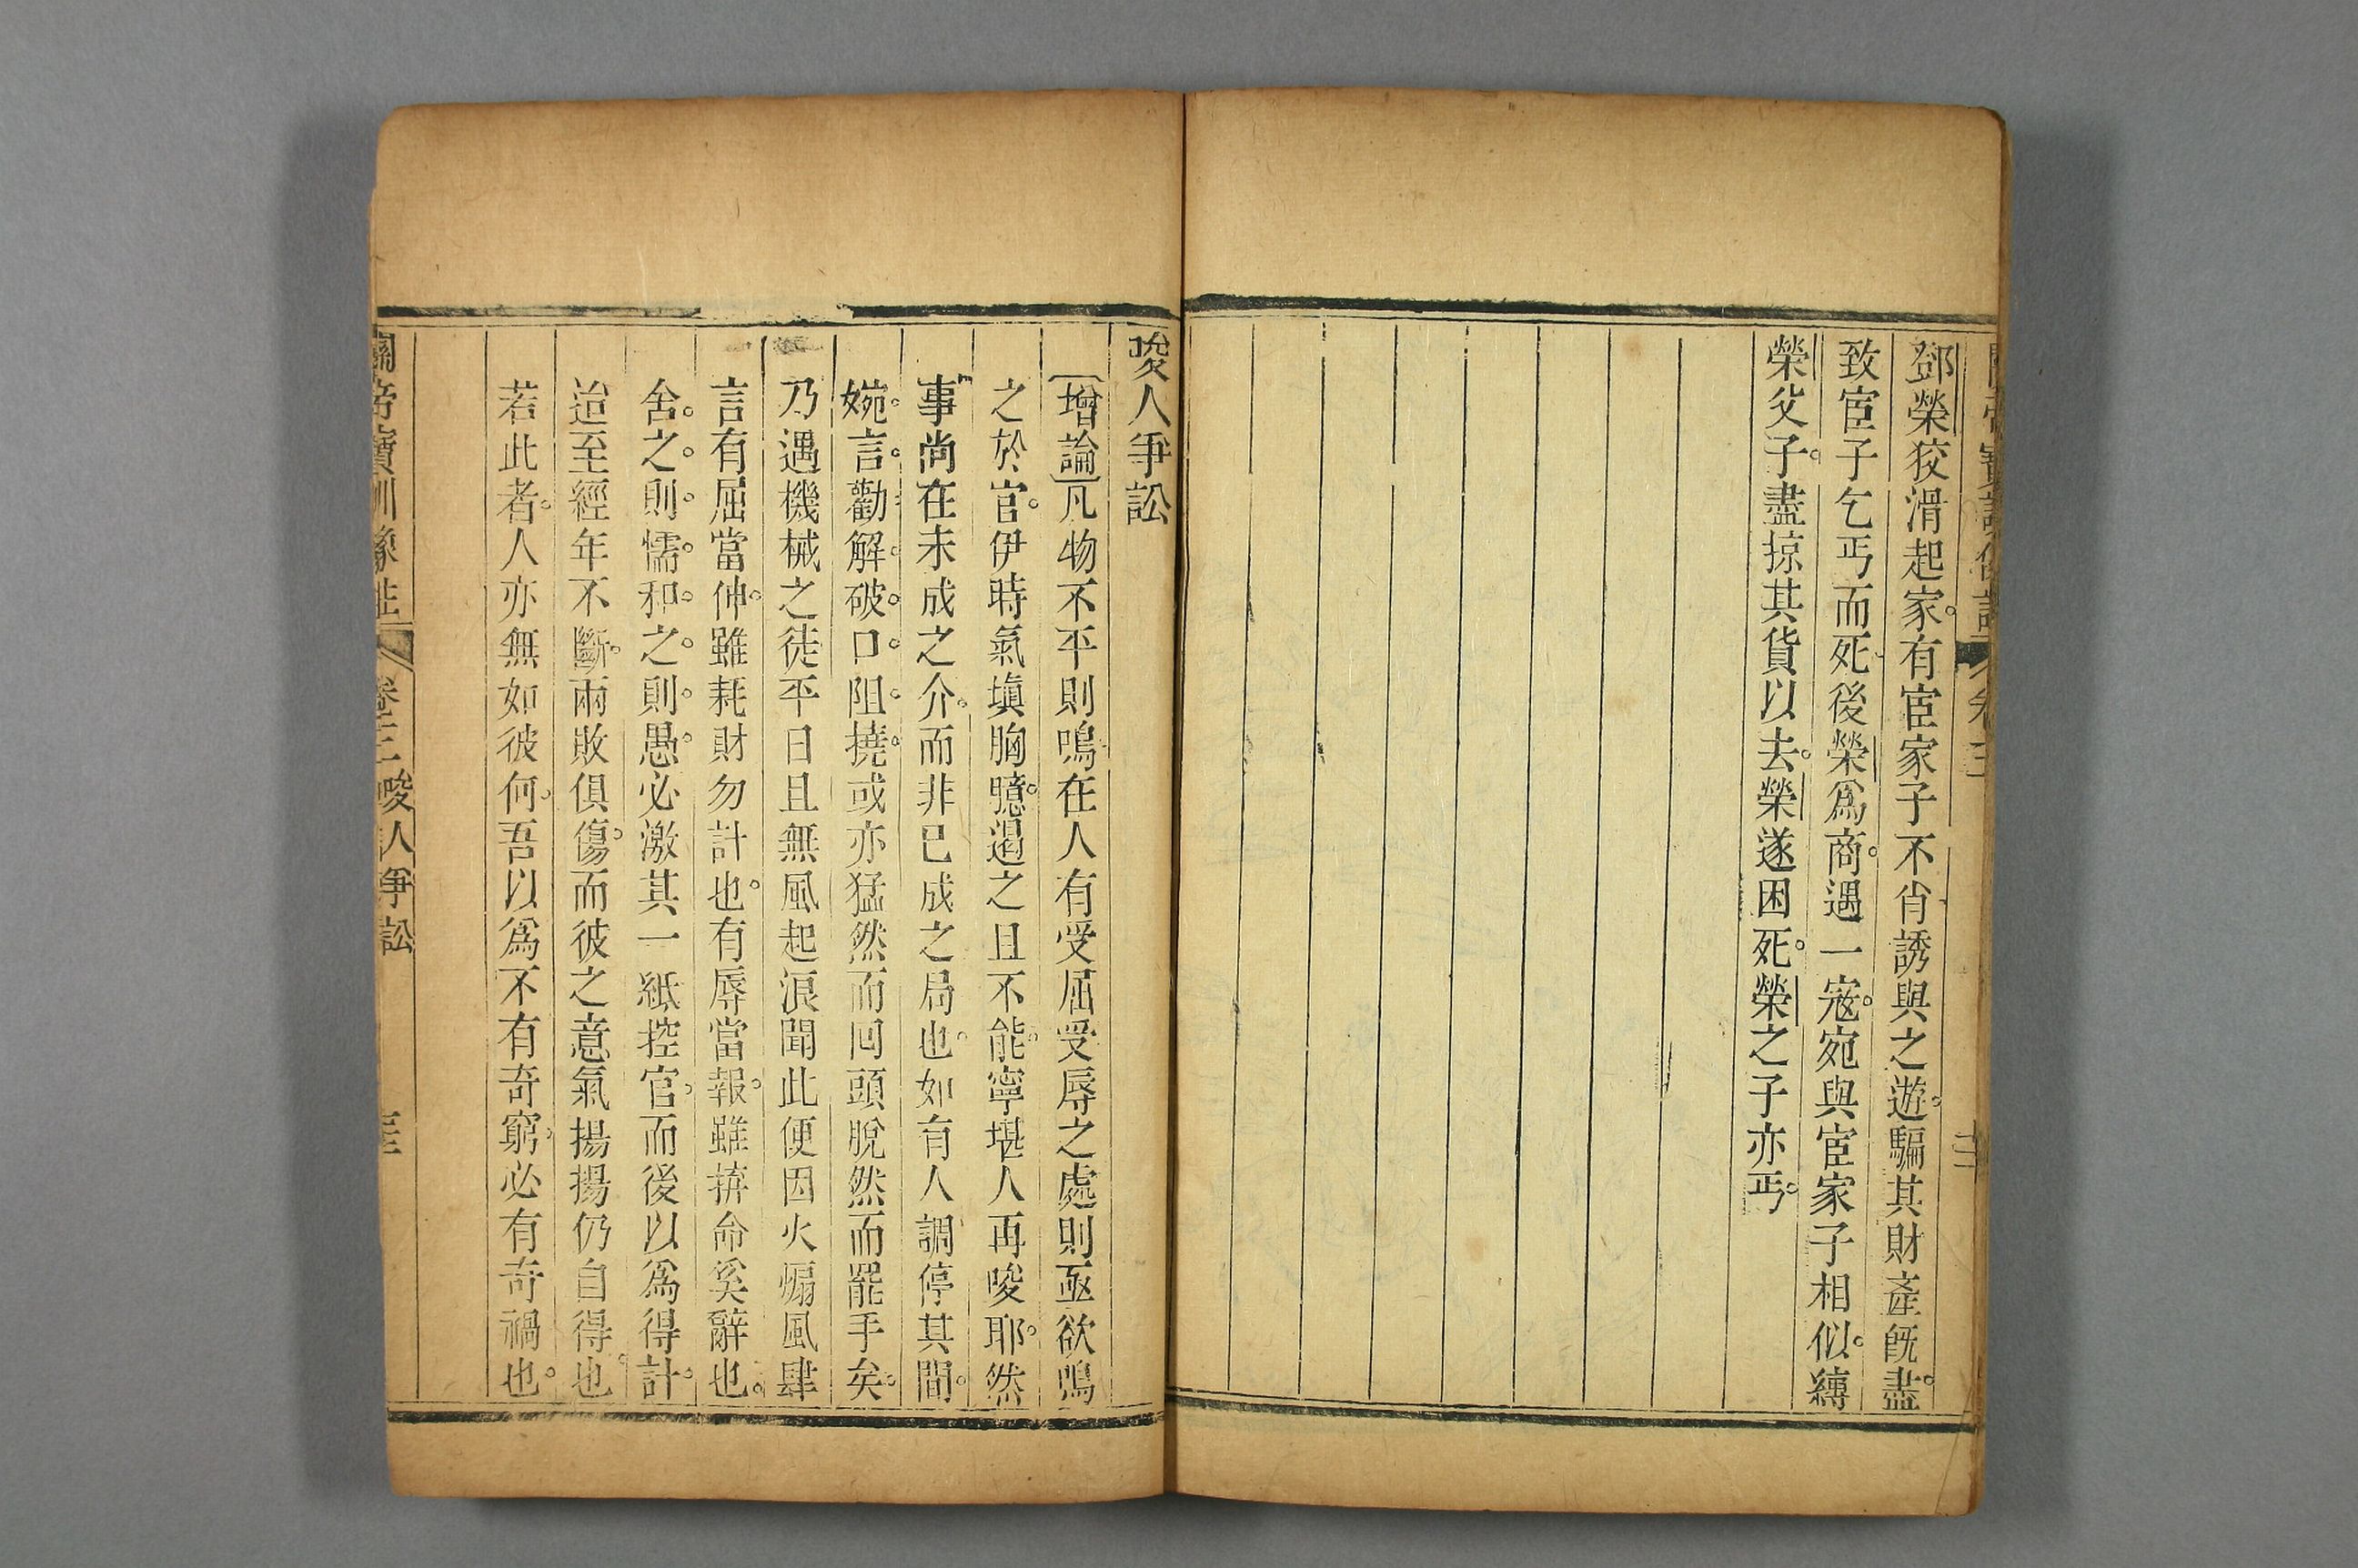 鄧榮狡滑起家。有宦家子不肖誘與之遊。騙其財產旣盡。
致宦子乞丐而死後榮爲商。遇一寇。宛與宦家子相似。縛
榮父子。盡掠其貨以去。榮遂困死。榮之子亦丐。
唆人爭訟
〔增論〕凡物不平則鳴在人有受屈受辱之處則亟欲鳴
之於官。伊時氣塡胸臆。遏之且不能。寧堪人再唆耶。然
事尚在未成之介。而非已成之局也。如有人調停其間。
婉言勸解破口阻撓。或亦猛然而回頭脫然而罷手矣。
乃遇機械之徒平日且無風起浪聞此便因火煽風肆
言有屈當伸。雖耗財勿計也。有辱當報。雖拚命奚辭也。
舍之則懦。和之則愚。必激其一紙控官。而後以爲得計。
迨至經年不斷。兩敗俱傷。而彼之意氣揚揚仍自得也。
若此者。人亦無如彼何。吾以爲不有奇窮。必有奇禍也。
關帝寶訓像註 卷三 唆人爭訟